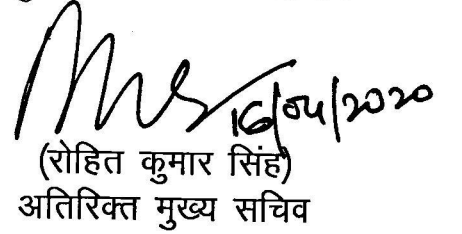 16/04/2020
(रोहित कुमार सिंह)
अतिरिक्त मुख्य सचिव